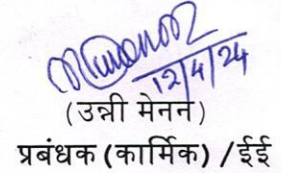 12/4/24
(उन्नी मेनन)
प्रबंधक (कार्मिक) /ईई